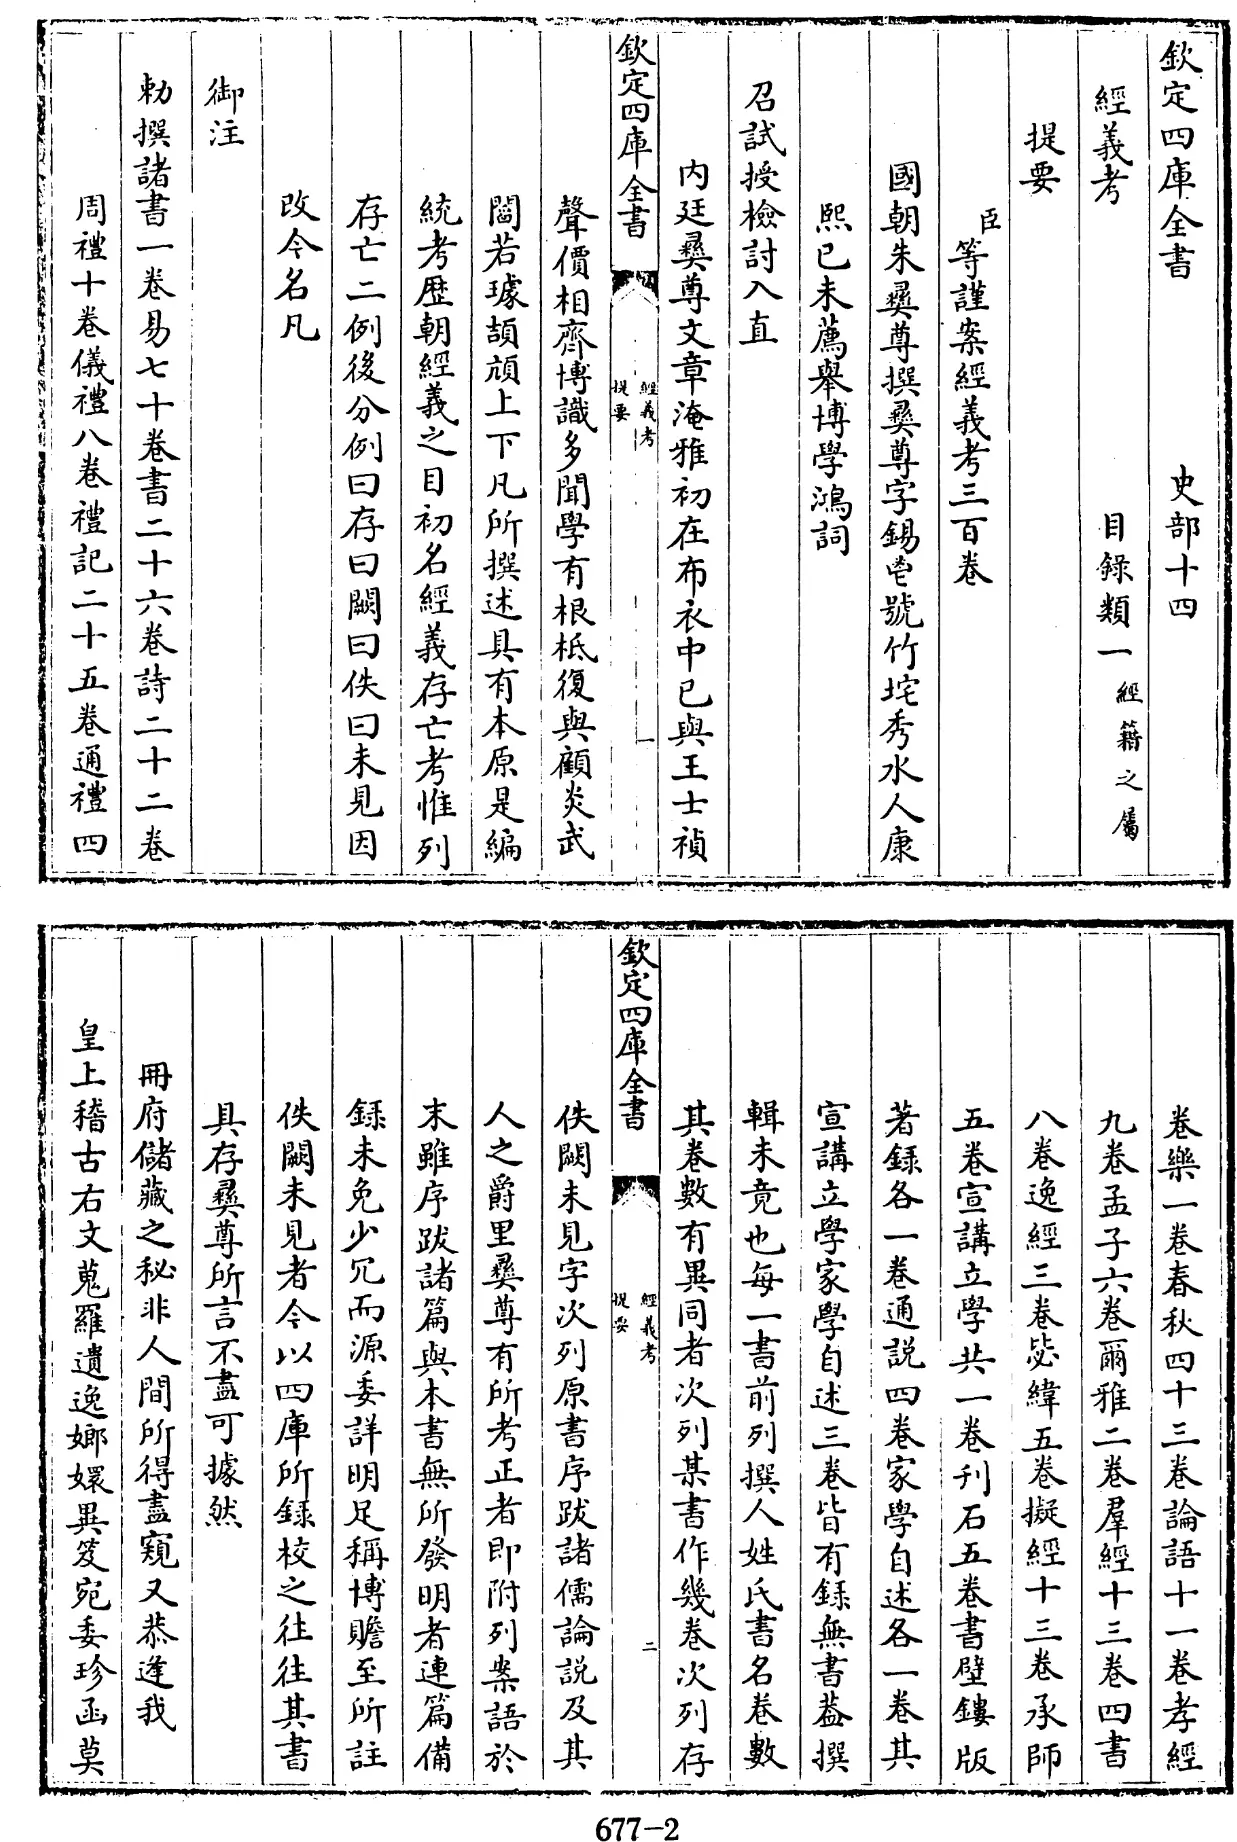 欽定四庫全書 史部十四
經義考 目錄類一經籍之屬
提要
臣等謹案經義考三百卷
國朝朱彝尊撰彝尊字錫鬯號竹垞秀水人康
熙已未薦舉博學鴻詞
召試授檢討入直
内廷彝尊文章淹雅初在布衣中已與王士禎
欽定四庫全書
經義考
提要
一
聲價相齊博識多聞學有根柢復與顧炎武
閻若璩頡頏上下凡所撰述具有本原是編
統考歴朝經義之目初名經義存亡考惟列
存亡二例後分例曰存曰闕曰佚曰未見因
改今名凡
御注
勅撰諸書一卷易七十卷書二十六卷詩二十二卷
周禮十卷儀禮八卷禮記二十五卷通禮四
卷樂一卷春秋四十三卷論語十一卷孝經
九卷孟子六卷爾雅二卷羣經十三卷四書
八卷逸經三卷毖緯五卷擬經十三卷承師
五卷宣講立學共一卷刋石五卷書壁鏤版
著録各一卷通説四卷家學自述各一卷其
宣講立學家學自述三卷皆有録無書葢撰
輯未竟也每一書前列撰人姓氏書名卷數
其卷數有異同者次列某書作幾卷次列存
欽定四庫全書
經義考
提要
二
佚闕未見字次列原書序跋諸儒論説及其
人之爵里彝尊有所考正者即附列案語於
末雖序跋諸篇與本書無所發明者連篇備
録未免少冗而源委詳明足稱博贍至所註
佚闕未見者今以四庫所録校之往往其書
具存彝尊所言不盡可據然
冊府儲藏之秘非人間所得盡窺又恭逢我
皇上稽古右文蒐羅遺逸嫏嬛異笈宛委珍函莫
677-2